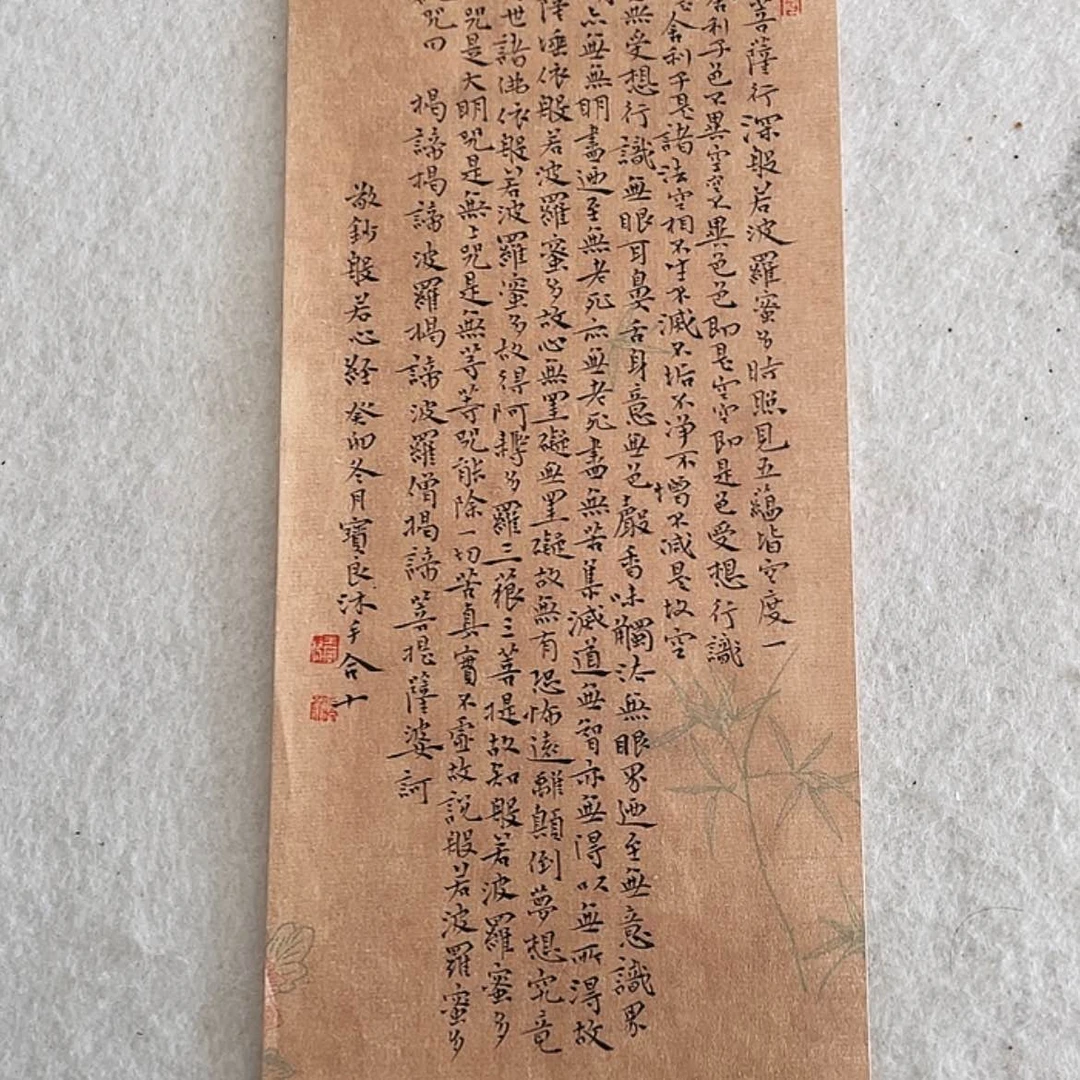 菩薩行深般若波羅蜜多時照見五蘊皆空度一
舍利子色不異空空不異色色即是空空即是色受想行識
舍利子是諸法空相不生不滅不垢不淨不增不減是故空
無受想行識無眼耳鼻舌身意無色聲香味觸法無眼界迺至無意識界
亦無無明盡迺至無老死亦無老死盡無苦集滅道無智亦無得以無所得故
埵依般若波羅蜜多故心無罣礙無罣礙故無有恐怖遠離顛倒夢想究竟
世諸佛依般若波羅蜜多故得阿耨多羅三藐三菩提故知般若波羅蜜多
咒是大明咒是無上咒是無等等咒能除一切苦真實不虛故說般若波羅蜜多
咒曰 揭諦揭諦波羅揭諦波羅僧揭諦菩提薩婆訶
敬鈔般若心經癸卯冬月寶良沐手合十